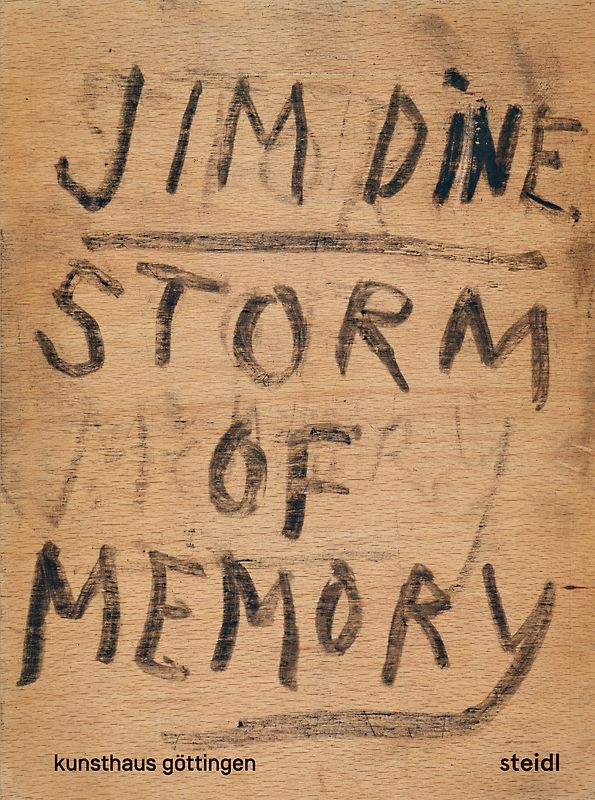 JIM DINE
STORM
OF
MEMORY
kunsthaus göttingen steidl